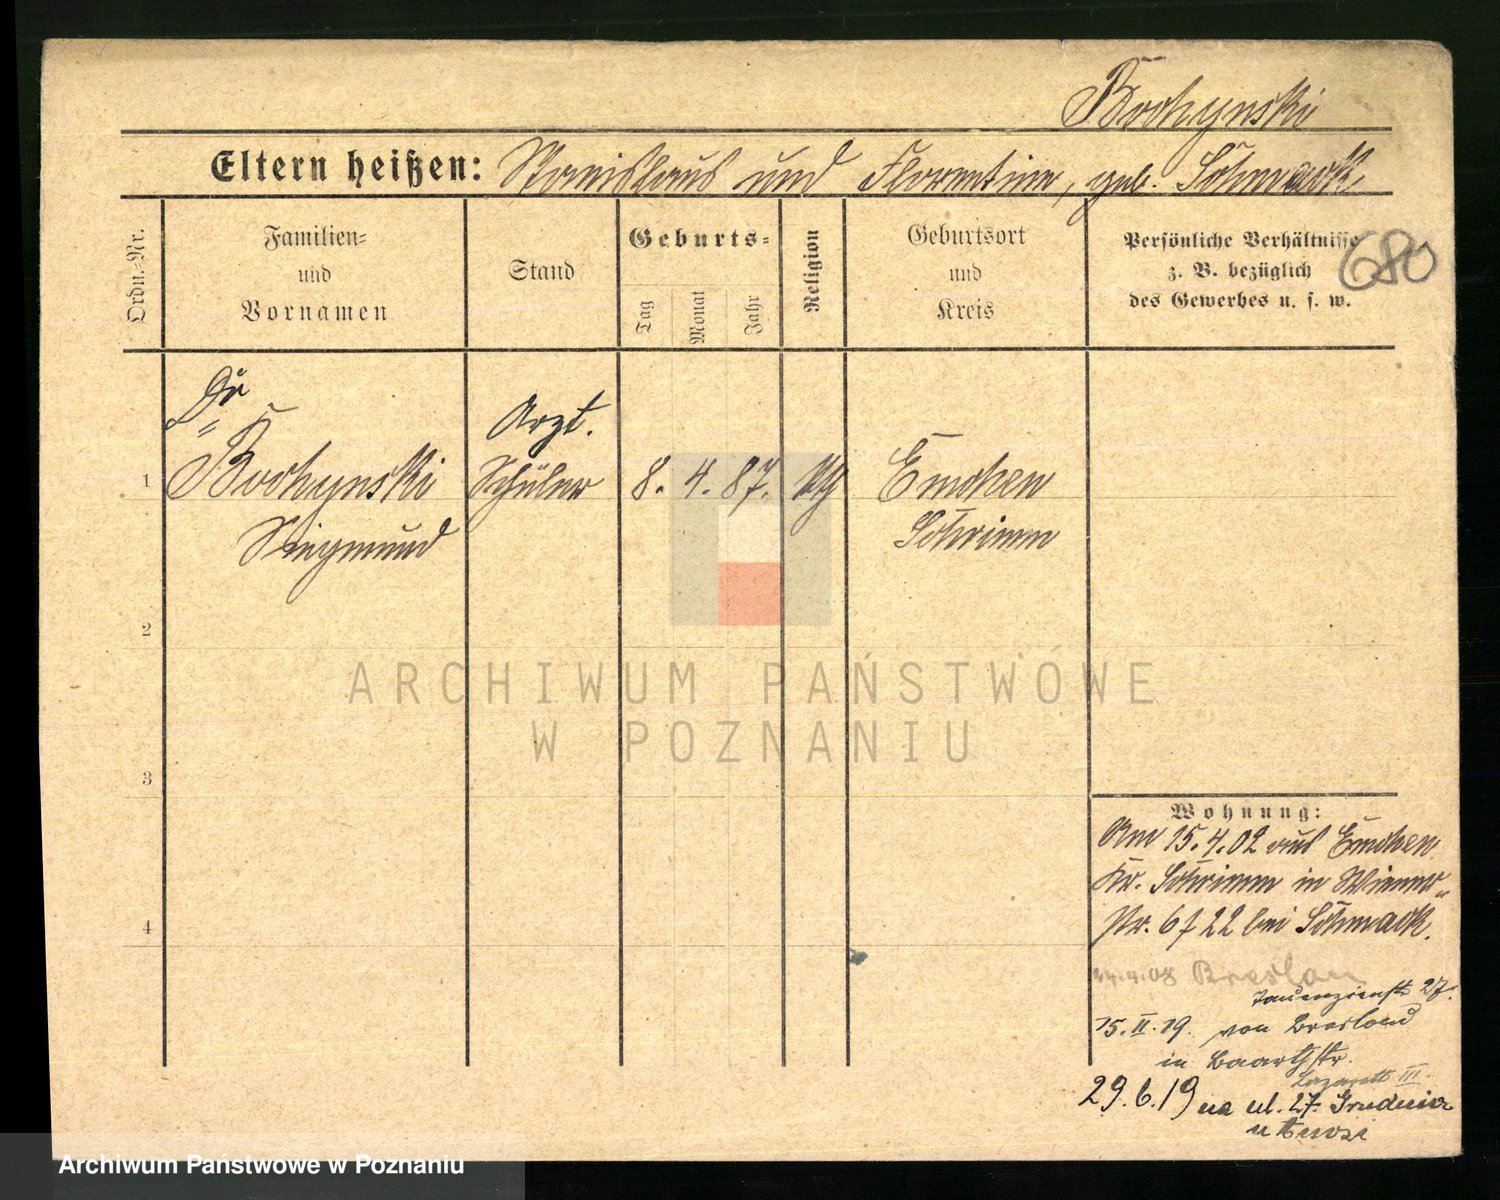 Bochynski
Eltern heißen: Stanislaus und Florentine, geb. Schmack
Ordn.-Nr.
Familien-
und
Vornamen
Stand
Geburts-
Tag
Monat
Jahr
Religion
Geburtsort
und
Kreis
Persönliche Verhältnisse
z. B. bezüglich
des Gewerbes u. s. w.
680
Dr
Arzt.
1 Bochynski Schüler 8. 4. 87. Emchen
Siegmund Schrimm
2
ARCHIWUM PAŃSTWOWE
W POZNANIU
3
Wohnung:
Am 15.4.02 aus Emchen
Kr. Schrimm in Wiener-
str. 6 f 22 bei Schmack.
4
4.08 Breslau
Tauenzienstr 27.
15.II.19. von Breslau
in Baarthstr.
Lazarett III.
29.6.19 na ul. 27. Grudnia
u
Archiwum Państwowe w Poznaniu